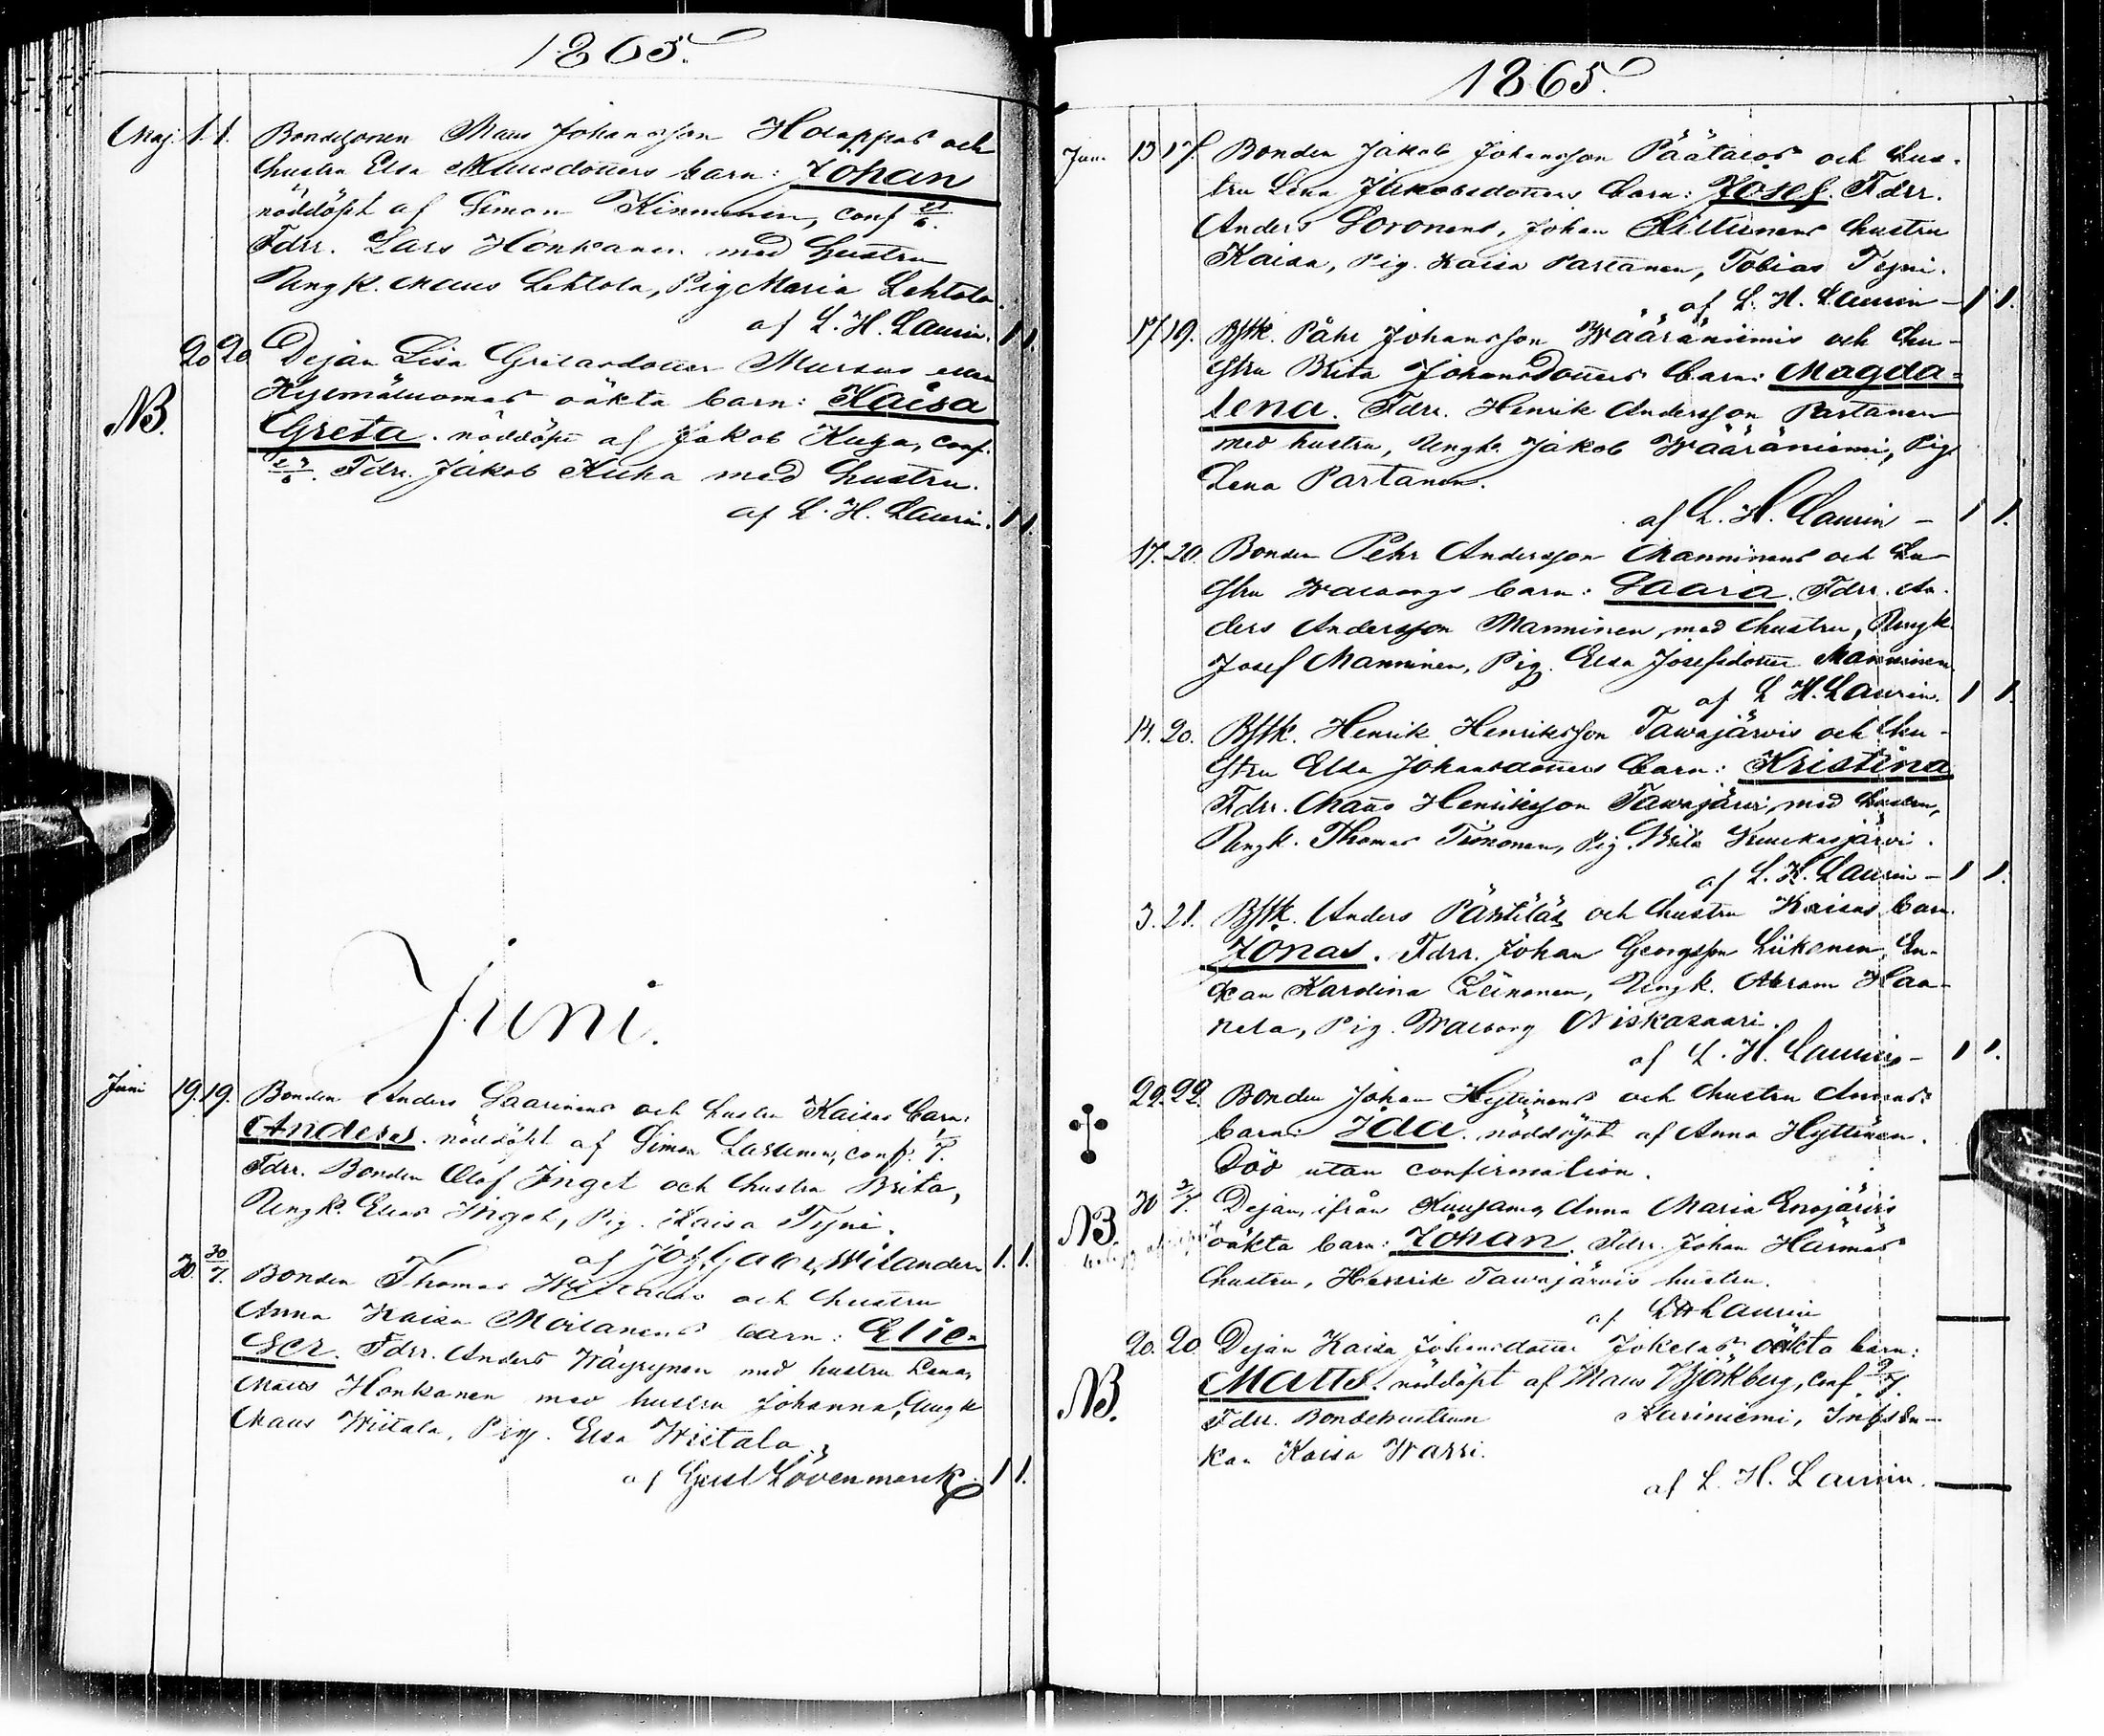 1865.
Maj. 1. 1. Bondesonen Maus Johansson Holappas och
hustru Elsa Mausdotters barn: Johan
nöddöpt af Simon Kinnunen, conf 25/6.
Fdrr. Lars Honkanen med hustru
Ungk. Maus Lehtola, Pig Maria Lehtola.
af L. H. Laurin. 1 1.
20 20 Dejan Lisa Grelsdotter Mursus eller
oäkta barn: Kaisa
NB.
Greta. nöddöpt af Jakob Kuha, conf.
Fdrr. Jakob Kuha med hustru.
af L. H. Laurin. 1 1.
Juni.
Juni 19. 19. Bonden Anders Saarinens och hustru Kaisas barn:
Anders. nöddöpt af Simon conf.
Fdrr. Bonden Olof Inget och hustru Brita,
Ungk. Elias Inget, Pig. Kaisa Tejni.
af Wilander. 1. 1.
30. 30/7. Bonden Thomas och hustru
Anna Kaisa Moilanens barn: Elie-
ser. Fdrr. Anders Wäyrynen med hustru Lena,
Maus Honkanen med hustru Johanna, Ungk
Maus Wiitala, Pig. Elsa Wiitala.
af Gust Lövenmark. 1 1.
1865.
Juni 13 17. Bonden Jakob Johansson Päätalos och hus-
tru Lena Jakobsdotters barn: Josef. Fdrr.
Anders Soronens, Johan Kiltunens hustru
Kaisa, Pig. Kaisa Partanen, Tobias Tejni.
af L. H. Laurin – 1 1.
17 19. Bstk. Påhr Johansson Wääräniemis och hu-
stru Brita Johansdotters barn: Magda-
lena. Fdrr. Henrik Andersson Partanen
med hustru, Ungk. Jakob Wääräniemi, Pig.
Lena Partanen.
af L. H. Laurin – 1 1.
17. 20. Bonden Pehr Andersson Manninens och hu-
stru Walborgs barn: Saara. Fdrr. An-
ders Andersson Manninen med hustru, Ungk.
Josef Manninen, Pig. Elsa Josefsdotter Manninen.
af L H. Laurin. 1 1.
14. 20. Bstk. Henrik Henriksson Tawajärvis och hu-
stru Elsa Johansdotters barn: Kristina
Fdrr. Maus Henriksson Tawajärvi med hustru,
Ungk. Thomas Pig. Brita
af L. H. Laurin – 1 1.
3. 21. Bstk. Anders och hustru Kaisas barn.
Jonas. Fdrr. Johan Georgsson Liikanen, En-
kan Karolina Leinonen, Ungk. Abram Haa-
pela, Pig. Walborg Niskasaari.
af L. H. Laurin – 1 1.
22. 22. Bonden Johan Hyttinens och hustru Annas
barn: Ida. nöddöpt af Anna Hyttinen.
Död utan confirmation.
30 2/7. Dejan, ifrån Kuusamo, Anna Maria Enojärvis
NB.
oäkta barn: Johan. Fdrr. Johan Härmäs
hustru, Henrik Tawajärvis hustru.
af LHLaurin
20. 20. Dejan Kaisa Johansdotter Jokelas oäkta barn:
NB.
Matts. nöddöpt af Maus Björkberg, conf. 2/7.
Fdrr. Bondehustrun Kariniemi, Inhs En-
kan Kaisa Warsi.
af L. H. Laurin.